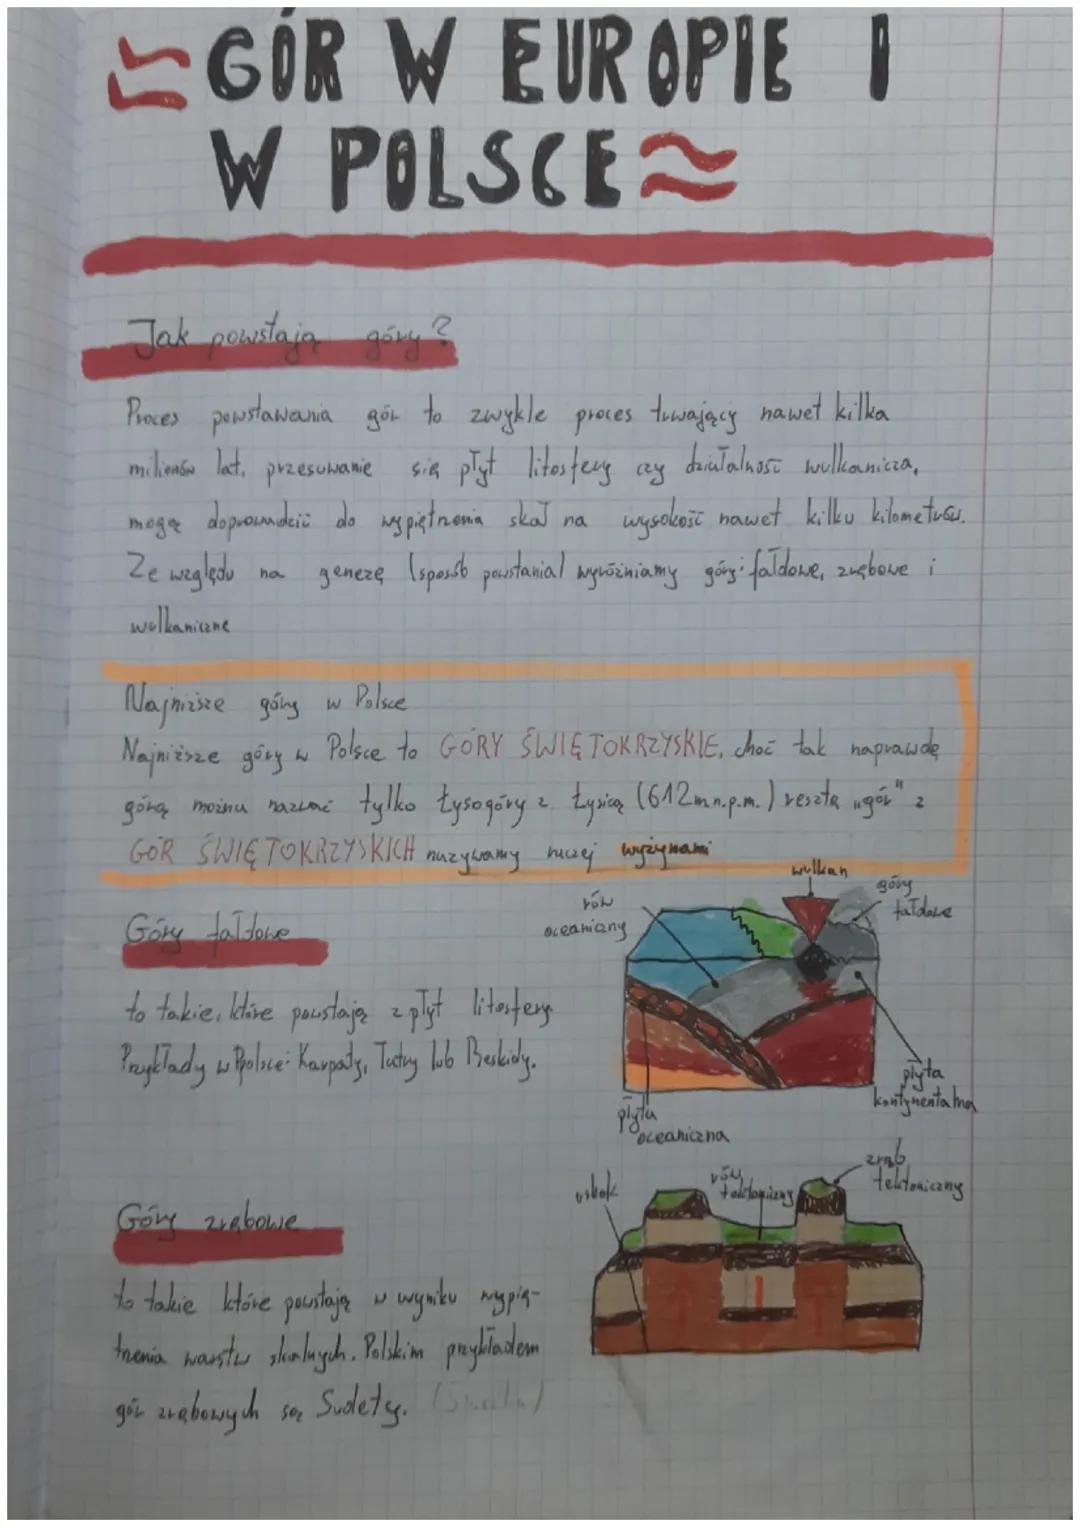 GÓR W EUROPIE I
W POLSCE
Jak powstają góry?
Proces powstawania gór to zwykle proces trwający nawet kilka
milionów lat, przesuwanie się płyt litosfery czy działalność wulkanicza,
mogą doprowadzić do wypiętrzenia skał na wysokość nawet kilku kilometrów.
Ze względu na genezę (sposób powstania) wyróżniamy góry: fałdowe, zrębowe i
wulkaniczne
Najniższe góry w Polsce
Najniższe góry w Polsce to GÓRY ŚWIĘTOKRZYSKIE, choć tak naprawdę
górą można nazwać tylko Łysogóry z Łysicą (612m n.p.m.) resztę „gór" z
GÓR ŚWIĘTOKRZYSKICH nazywamy raczej wyżynami
wulkan
góry
fałdowe
rów
oceaniczny
Góry fałdowe
to takie, które powstają z płyt litosfery.
Przykłady w Polsce: Karpaty, Tatry lub Beskidy.
płyta
kontynentalna
płyta
oceaniczna
uskok
rów
tektoniczny
zrąb
tektoniczny
Góry zrębowe
to takie które powstają w wyniku wypię-
trzenia warstw skalnych. Polskim przykładem
gór zrębowych są Sudety.